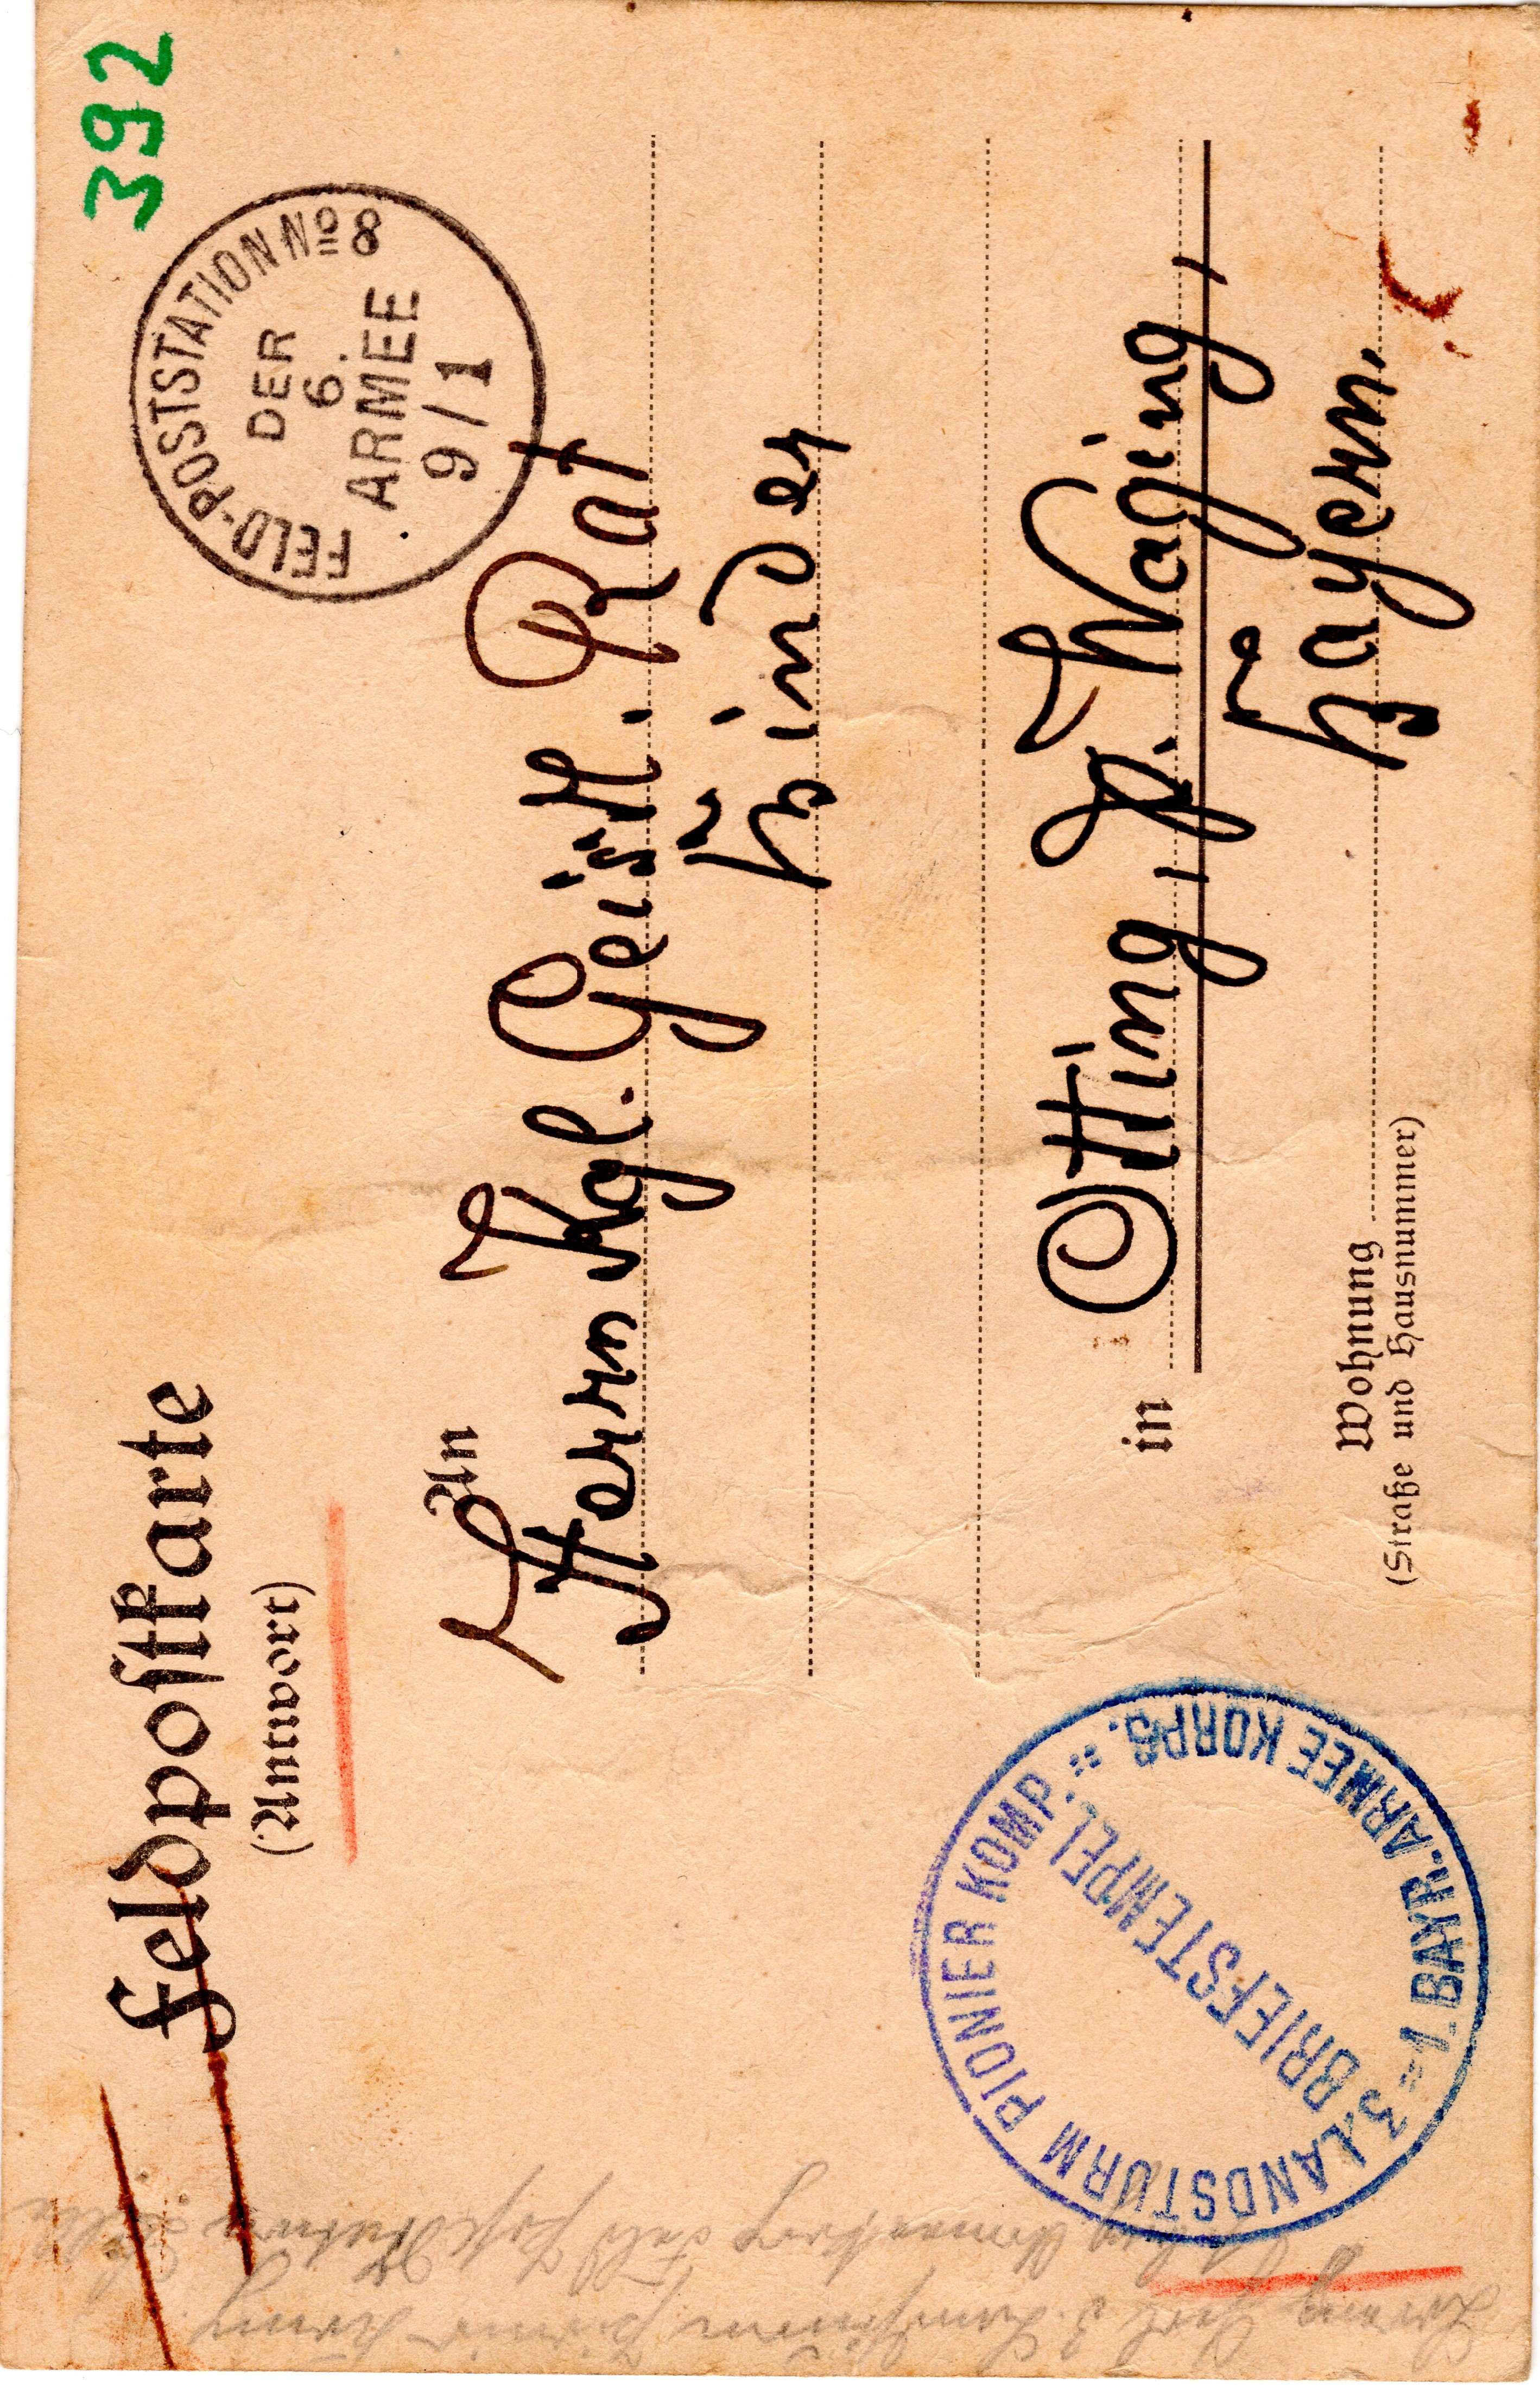 392
Feldpostkarte
(Antwort)
FELD-POSTSTATION No 8
DER
6.
ARMEE
9/1
An
Herrn Kgl. Geistl. Rat
Binder
in Otting, P. Waging,
Bayern.
Wohnung
(Straße und Hausnummer)
3. LANDSTURM PIONIER KOMP.
BRIEFSTEMPEL.
= 1. BAYR. ARMEE KORPS. =
3.
Feld Post